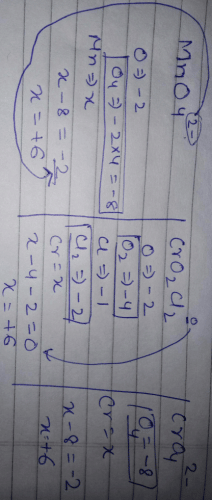 MnO4 2-
O => -2
O4 => -2×4 = -8
Mn => x
x - 8 = -2
x = +6
CrO2Cl2 0
O => -2
O2 => -4
Cl => -1
Cl2 => -2
Cr = x
x - 4 - 2 = 0
x = +6
CrO4 2-
O4 = -8
Cr = x
x - 8 = -2
x = +6